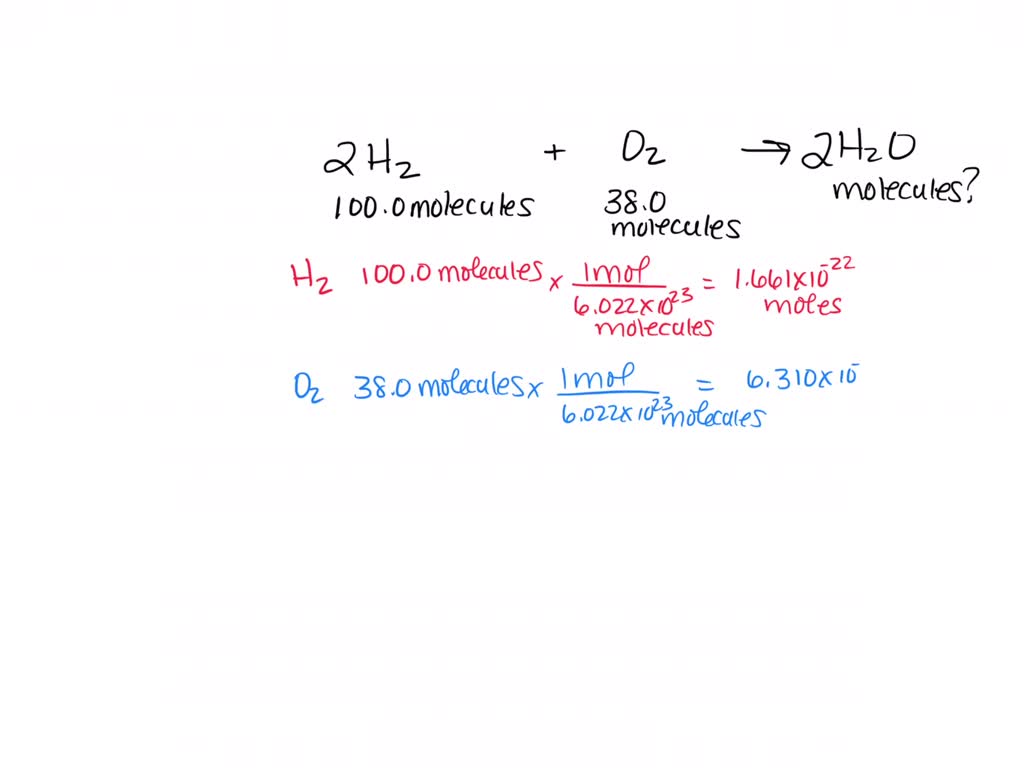 2H₂ + O₂ → 2H₂O
100.0 molecules 38.0 molecules molecules?
H₂ 100.0 molecules x 1 mol / 6.022x10²³ molecules = 1.661x10⁻²² moles
O₂ 38.0 molecules x 1 mol / 6.022x10²³ molecules = 6.310x10⁻